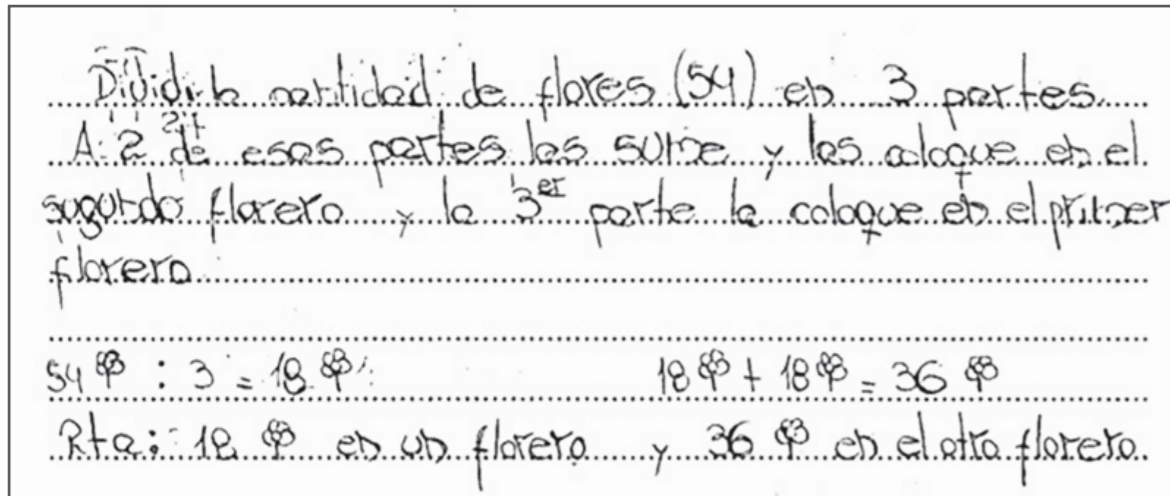 Dividí la cantidad de flores (54) en 3 partes.
A 2 de esas partes las sume y las coloque en el
sugundo florero y la 3er parte la coloque en el primer
florero.
54 : 3 = 18 18 + 18 = 36
Rta: 18 en un florero y 36 en el otro florero.